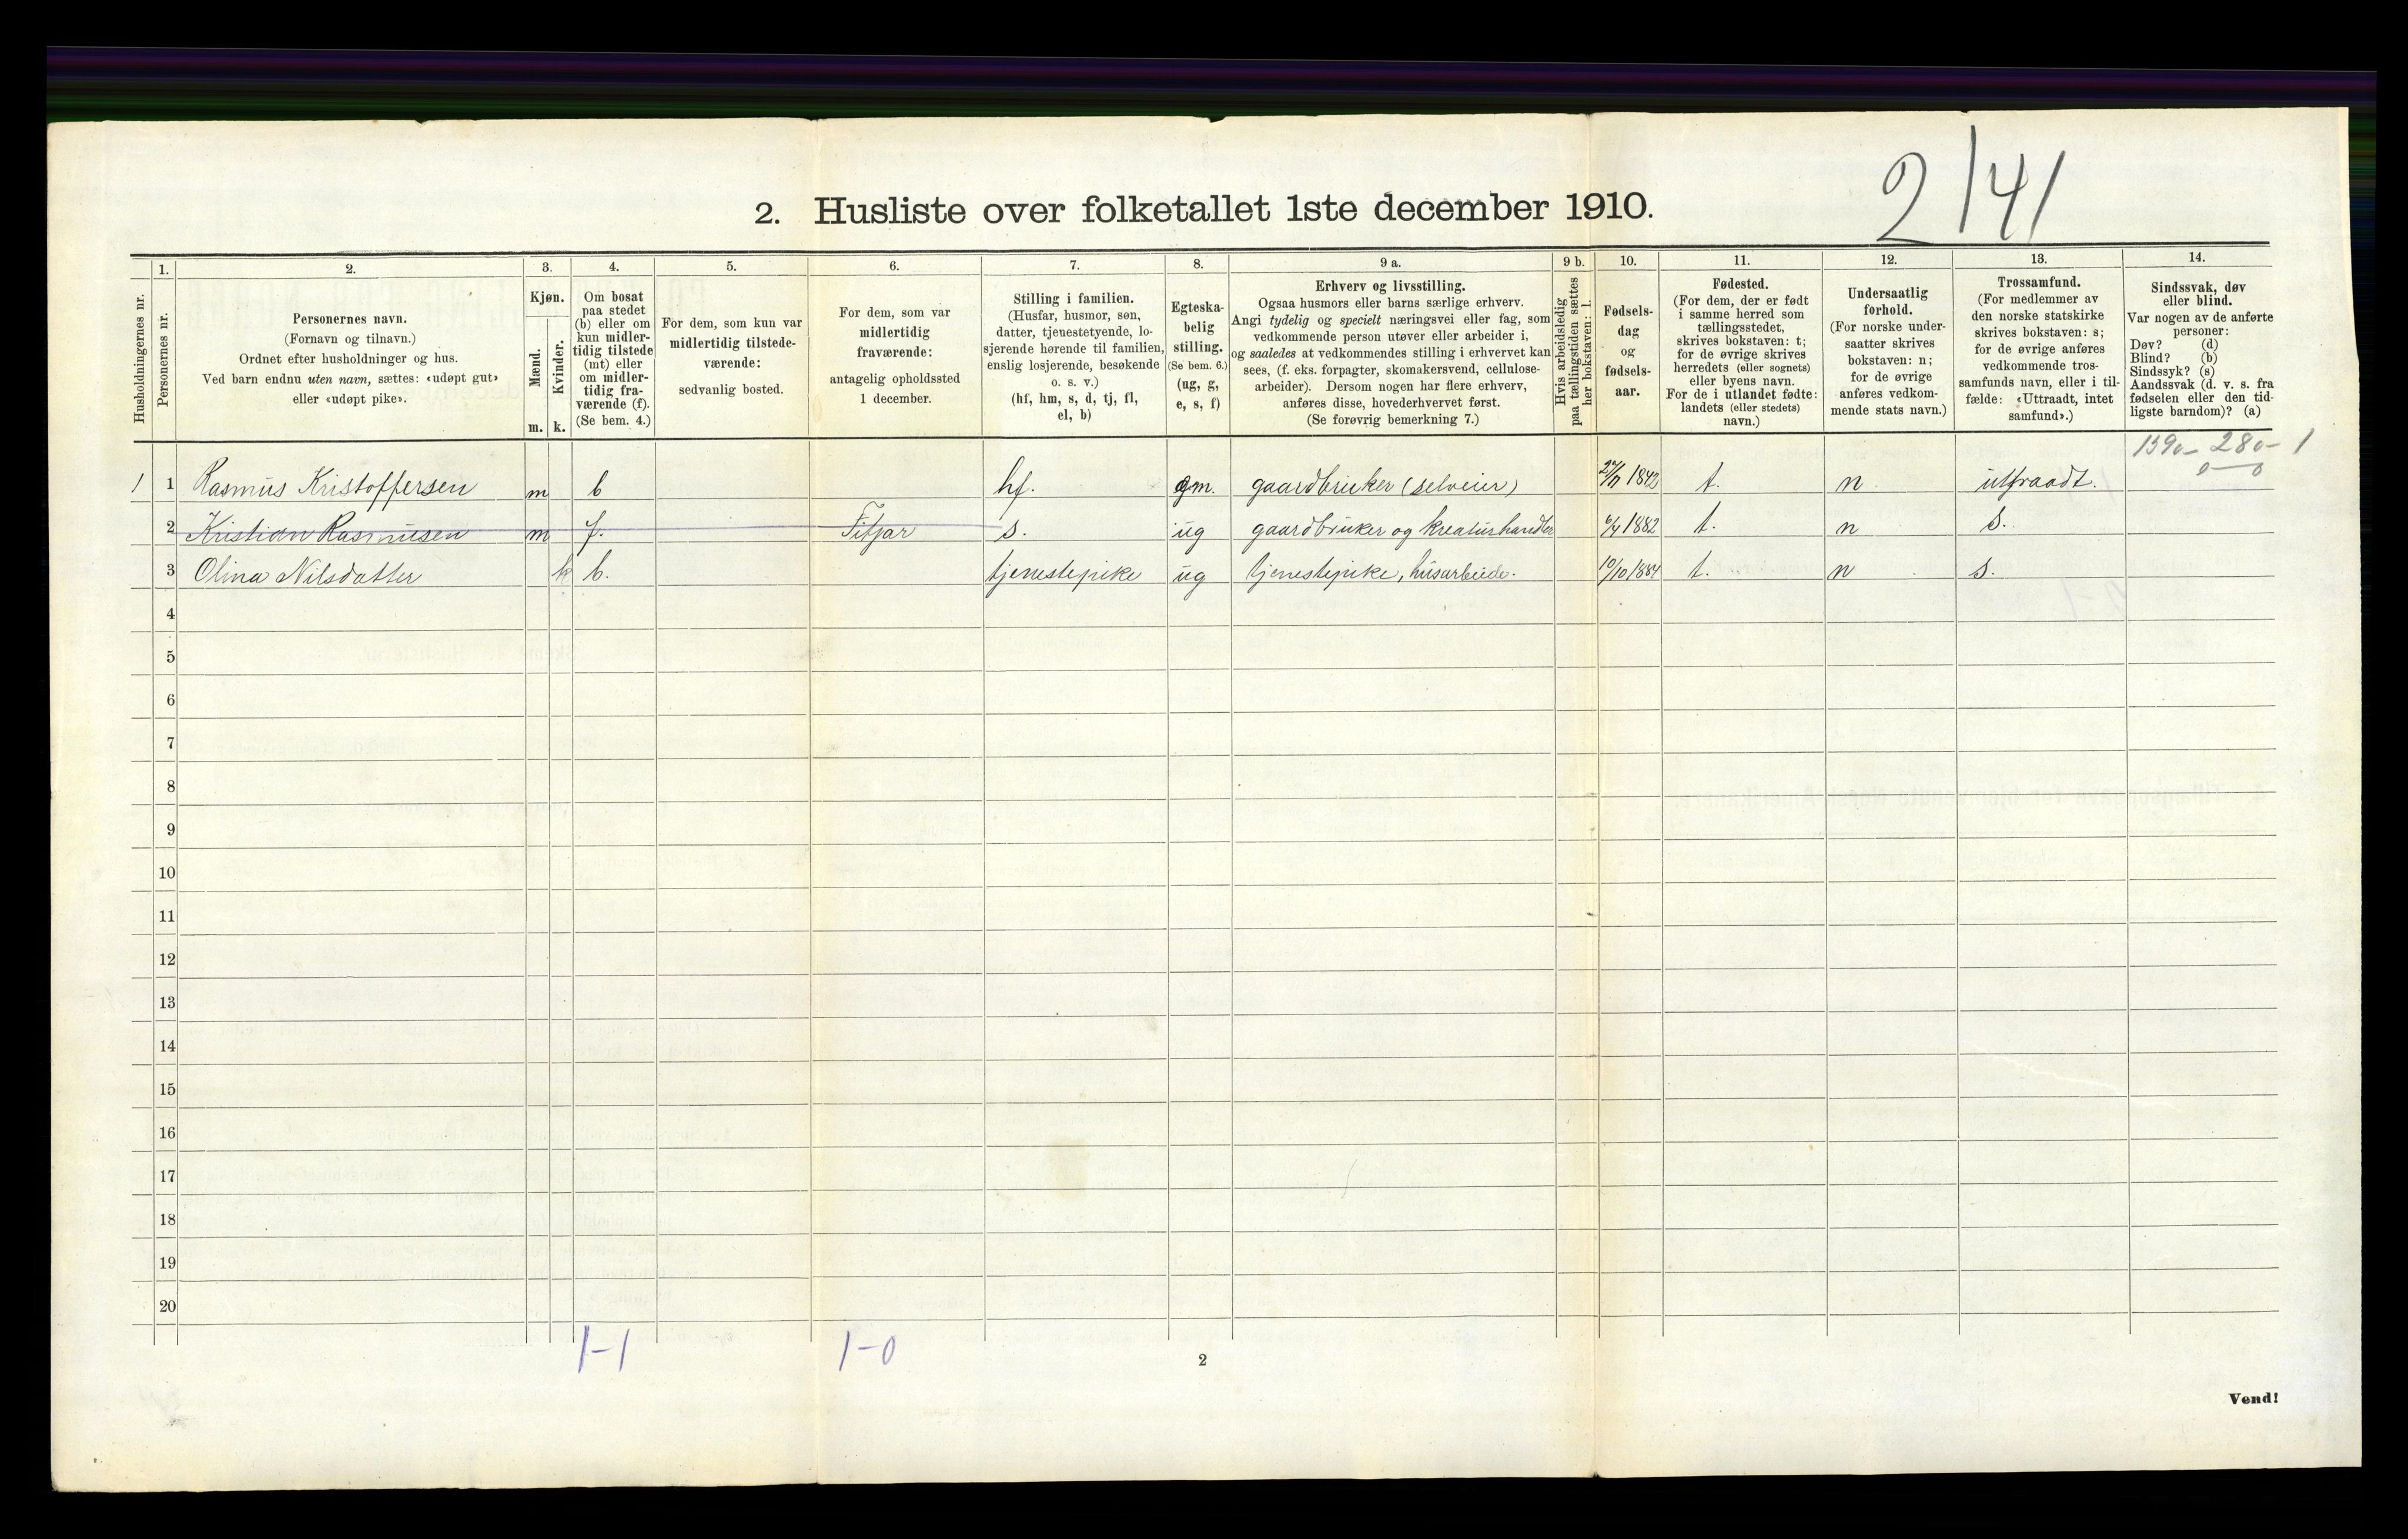 2/41
2. Husliste over folketallet 1ste december 1910.
1. 2. 3. 4. 5. 6. 7. 8. 9 a. 9 b. 10. 11. 12. 13. 14.
Husholdningernes nr.
Personernes nr.
Personernes navn.
(Fornavn og tilnavn.)
Ordnet efter husholdninger og hus.
Ved barn endnu uten navn, sættes: «udøpt gut»
eller «udøpt pike».
Kjøn.
Mænd.
Kvinder.
m. k.
Om bosat
paa stedet
(b) eller om
kun midler-
tidig tilstede
(mt) eller
om midler-
tidig fra-
værende (f).
(Se bem. 4.)
For dem, som kun var
midlertidig tilstede-
værende:
sedvanlig bosted.
For dem, som var
midlertidig
fraværende:
antagelig opholdssted
1 december.
Stilling i familien.
(Husfar, husmor, søn,
datter, tjenestetyende, lo-
sjerende hørende til familien,
enslig losjerende, besøkende
o. s. v.)
(hf, hm, s, d, tj, fl,
el, b)
Egteska-
belig
stilling.
(Se bem. 6.)
(ug, g,
e, s, f)
Erhverv og livsstilling.
Ogsaa husmors eller barns særlige erhverv.
Angi tydelig og specielt næringsvei eller fag, som
vedkommende person utøver eller arbeider i,
og saaledes at vedkommendes stilling i erhvervet kan
sees, (f. eks. forpagter, skomakersvend, cellulose-
arbeider). Dersom nogen har flere erhverv,
anføres disse, hovederhvervet først.
(Se forøvrig bemerkning 7.)
Hvis arbeidsledig
paa tællingstiden sættes
her bokstaven: l.
Fødsels-
dag
og
fødsels-
aar.
Fødested.
(For dem, der er født
i samme herred som
tællingsstedet,
skrives bokstaven: t;
for de øvrige skrives
herredets (eller sognets)
eller byens navn.
For de i utlandet fødte:
landets (eller stedets)
navn.)
Undersaatlig
forhold.
(For norske under-
saatter skrives
bokstaven: n;
for de øvrige
anføres vedkom-
mende stats navn.)
Trossamfund.
(For medlemmer av
den norske statskirke
skrives bokstaven: s;
for de øvrige anføres
vedkommende tros-
samfunds navn, eller i til-
fælde: «Uttraadt, intet
samfund».)
Sindssvak, døv
eller blind.
Var nogen av de anførte
personer:
Døv? (d)
Blind? (b)
Sindssyk? (s)
Aandssvak (d. v. s. fra
fødselen eller den tid-
ligste barndom)? (a)
1390- 280- 1
0-0
1 1 Rasmus Kristoffersen m b hf. gm. gaardbruker (selveier) 1842 t. n utraadt.
2 Kristian Rasmusen m f. Fitjar s. ug gaardbruker og kreaturhandler 6/4 1882 t. n s.
3 Olina Nilsdatter k b. tjenestepike ug tjenestepike, husarbeide. 10/10 1884 t. n s.
4
5
6
7
8
9
10
11
12
13
14
15
16
17
18
19
20
1-1 1-0
2
Vend!